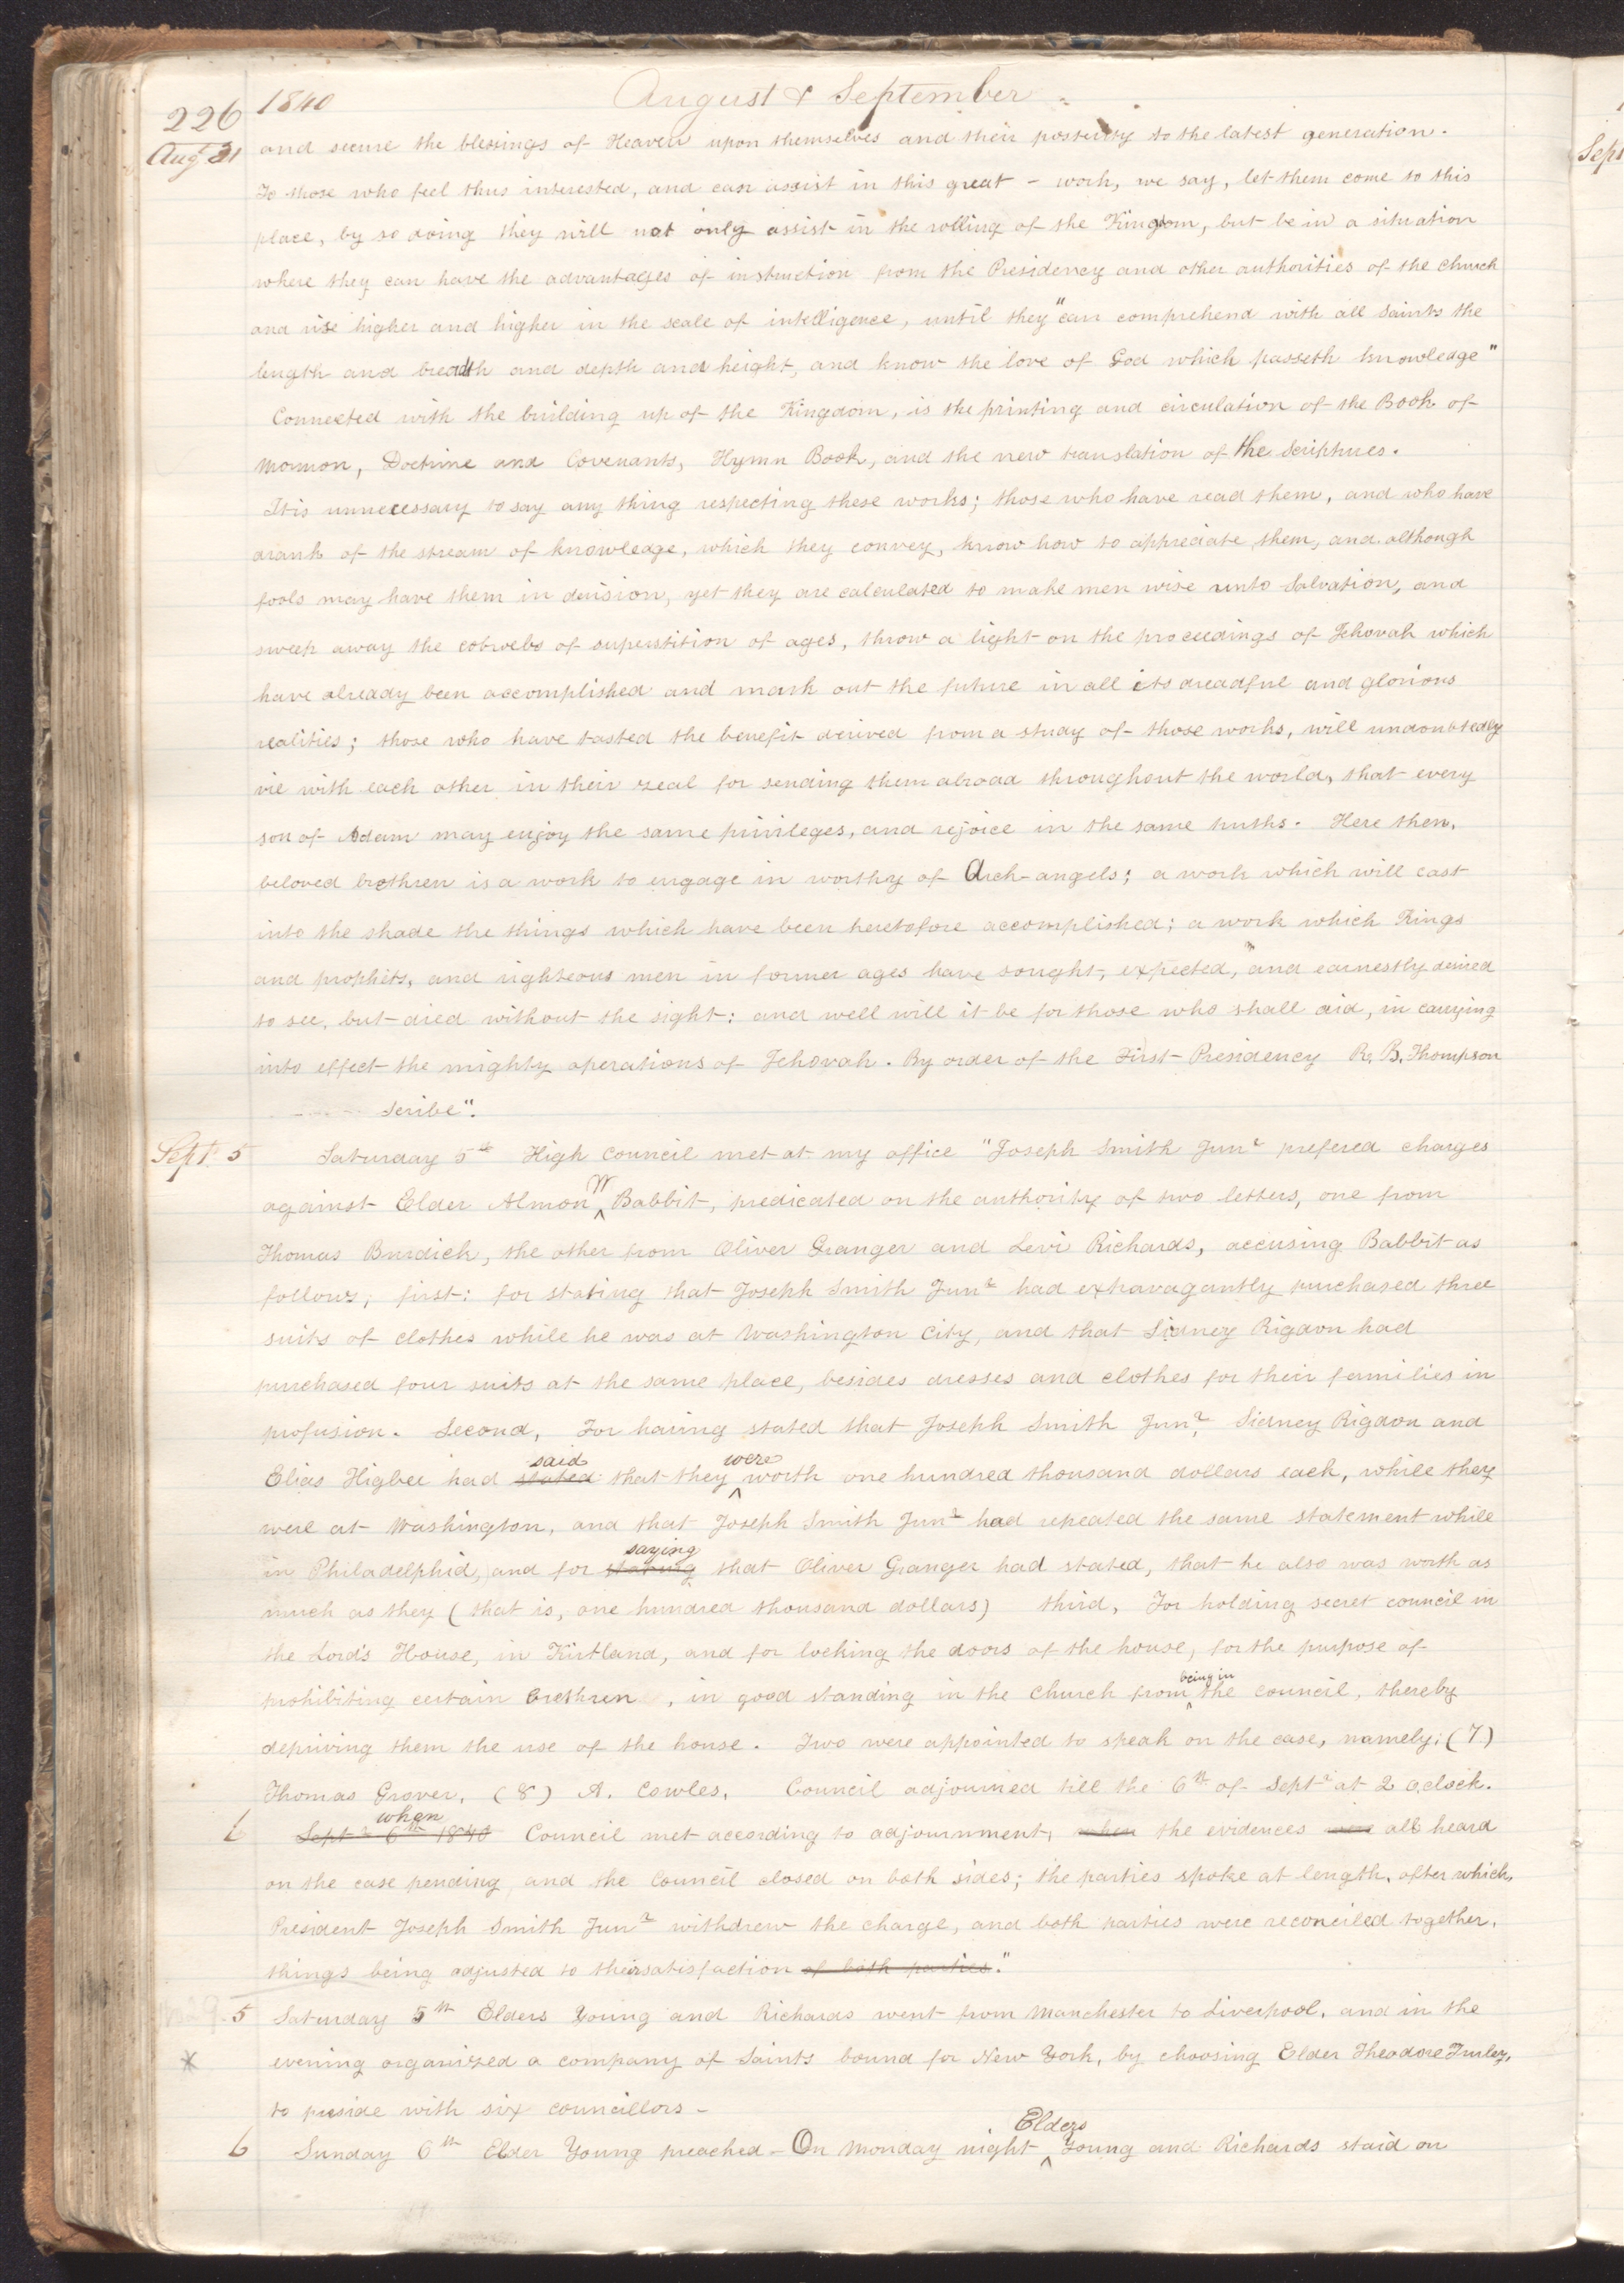 226 1840 August & September
Augt 31 and secure the blessings of Heaven upon themselves and their posterity to the latest generation.
To those who feel thus interested, and can assist in this great - work, we say, let them come to this
place, by so doing they will not only assist in the rolling of the Kingdom, but be in a situation
where they can have the advantages of instruction from the Presidency and other authorities of the church
and rise higher and higher in the scale of intelligence, until they "can comprehend with all saints the
length and breadth and depth and height, and know the love of God which passeth knowledge"
Connected with the building up of the Kingdom, is the printing and circulation of the Book of
Mormon, Doctrine and Covenants, Hymn Book, and the new translation of the Scriptures.
It is unnecessary to say any thing respecting these works; those who have read them, and who have
drank of the stream of knowledge, which they convey, know how to appreciate them, and although
fools may have them in derision, yet they are calculated to make men wise unto Salvation, and
sweep away the cobwebs of superstition of ages, throw a light on the proceedings of Jehovah which
have already been accomplished and mark out the future in all its dreadful and glorious
realities; those who have tasted the benefit derived from a study of those works, will undoubtedly
vie with each other in their zeal for sending them abroad throughout the world, that every
son of Adam may enjoy the same privileges, and rejoice in the same truths. Here then,
beloved brethren is a work to engage in worthy of Arch-angels; a work which will cast
into the shade the things which have been heretofore accomplished; a work which Kings
and prophets, and righteous men in former ages have sought, expected, and earnestly desired
to see, but died without the sight: and well will it be for those who shall aid, in carrying
into effect the mighty operations of Jehovah. By order of the First Presidency R. B. Thompson
scribe".
Sept. 5 Saturday 5th High Council met at my office "Joseph Smith Junr prefered charges
against Elder Almon W Babbit, predicated on the authority of two letters, one from
Thomas Burdick, the other from Oliver Granger and Levi Richards, accusing Babbit as
follows, first: for stating that Joseph Smith Junr had extravagantly purchased three
suits of clothes while he was at Washington City, and that Sidney Rigdon had
purchased four suits at the same place, besides dresses and clothes for their families in
profusion. Second, For having stated that Joseph Smith Junr, Sidney Rigdon and
Elias Higbee had stated said that they were worth one hundred thousand dollars each, while they
were at Washington, and that Joseph Smith Junr had repeated the same statement while
in Philadelphia, and for stating saying that Oliver Granger had stated, that he also was worth as
much as they (that is, one hundred thousand dollars) third, For holding secret council in
the Lord's House, in Kirtland, and for locking the doors of the house, for the purpose of
prohibiting certain brethren, in good standing in the Church from being in the council, thereby
depriving them the use of the house. Two were appointed to speak on the case, namely; (7)
Thomas Grover, (8) A. Cowles. Council adjourned till the 6th of Septr at 2 o,clock.
6 Septr 6th 1840 when Council met according to adjournment, when the evidences were all heard
on the case pending, and the Council closed on both sides; the parties spoke at length, after which,
President Joseph Smith Junr withdrew the charge, and both parties were reconciled together,
things being adjusted to their satisfaction of both parties."
5 Saturday 5th Elders Young and Richards went from Manchester to Liverpool, and in the
evening organized a company of Saints bound for New York, by choosing Elder Theodore Turley,
to preside with six councillors -
6 Sunday 6th Elder Young preached - On Monday night Elders Young and Richards staid on
Sept